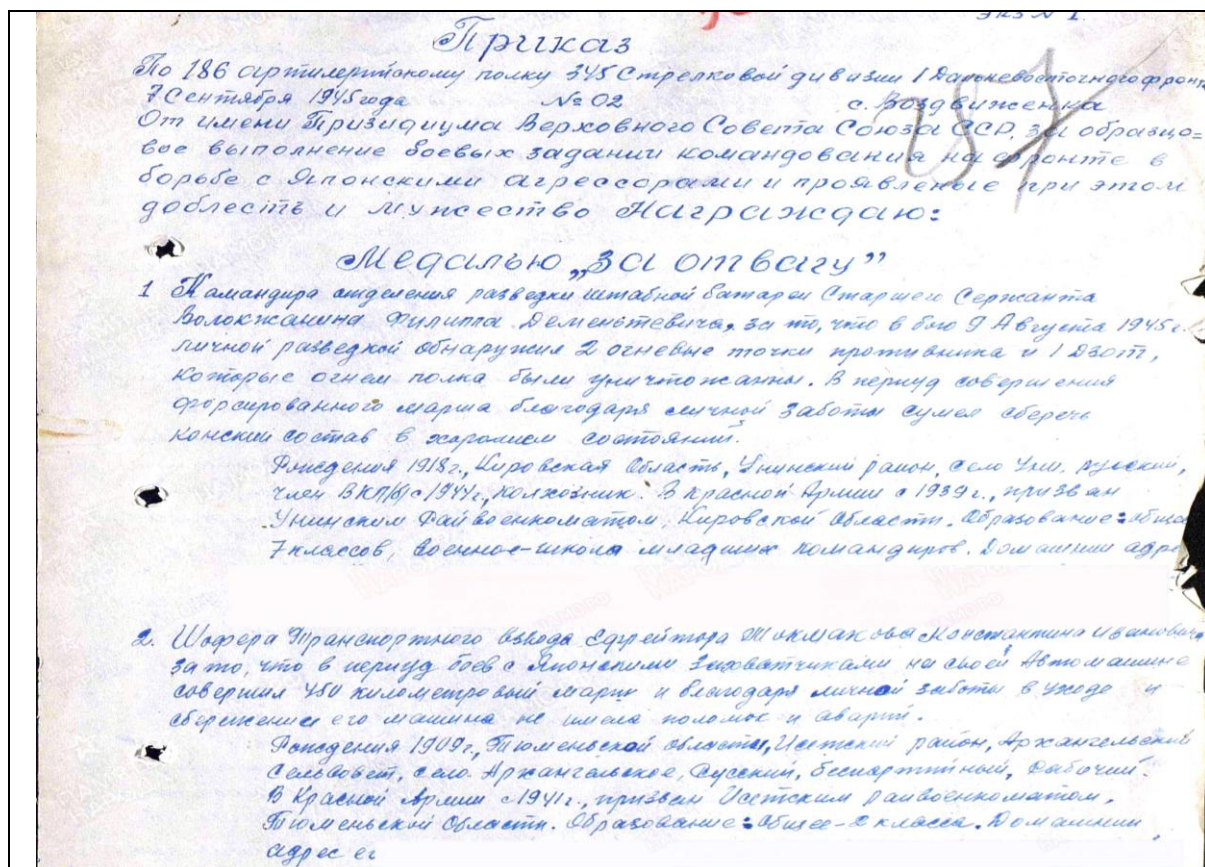 Экз № 1.
Приказ
По 186 артилерийскому полку 345 Стрелковой дивизии 1 Дальневосточного фронта
7 Сентября 1945 года № 02 с. Воздвиженка
От имени Призидиума Верховного Совета Союза ССР, за образцо=
вое выполнение боевых задании командования на фронте в
борьбе с Японскими агрессорами и проявленые при этом
доблесть и мужество Награждаю:
Медалью „За отвагу”
1 Командира отделения разведки штабной батареи Старшего Сержанта
Волокжанина Филиппа Дементевича, за то, что в бою 9 Августа 1945 г.
личной разведкой обнаружил 2 огневые точки противника и 1 Дзот,
которые огнем полка были уничтожанны. В период совершения
форсированного марша благодаря личной заботы сумел сберечь
конский состав в хорошем состоянии.
Рождения 1918 г., Кировская Область, Унинский район, село Уни, русский,
член ВКП/б/ с 1944 г., колхозник. В Красной Армии с 1939 г., призван
Унинским Райвоенкоматом, Кировской Области. Образование: обще
7 классов, военное - школа младших командиров. Домашнии адре
2. Шофера Транспортного взвода Ефрейтора Токмакова Константина Ивановича
за то, что в период боев с Японскими Захватчиками на своей Автомашине
совершил 450 километровый марш и благодаря личной заботы в уходе и
сбережении его машина не имела поломок и аварии.
Рождения 1909 г., Тюменьской области, Исетский район, Архангельский
Сельсовет, село Архангельское, Русский, беспартийный, рабочий.
В Красной Армии с 1941 г., призван Исетским райвоенкоматом,
Тюменьской Области. Образование: Общее - 2 класса. Домашнии
адрес ег